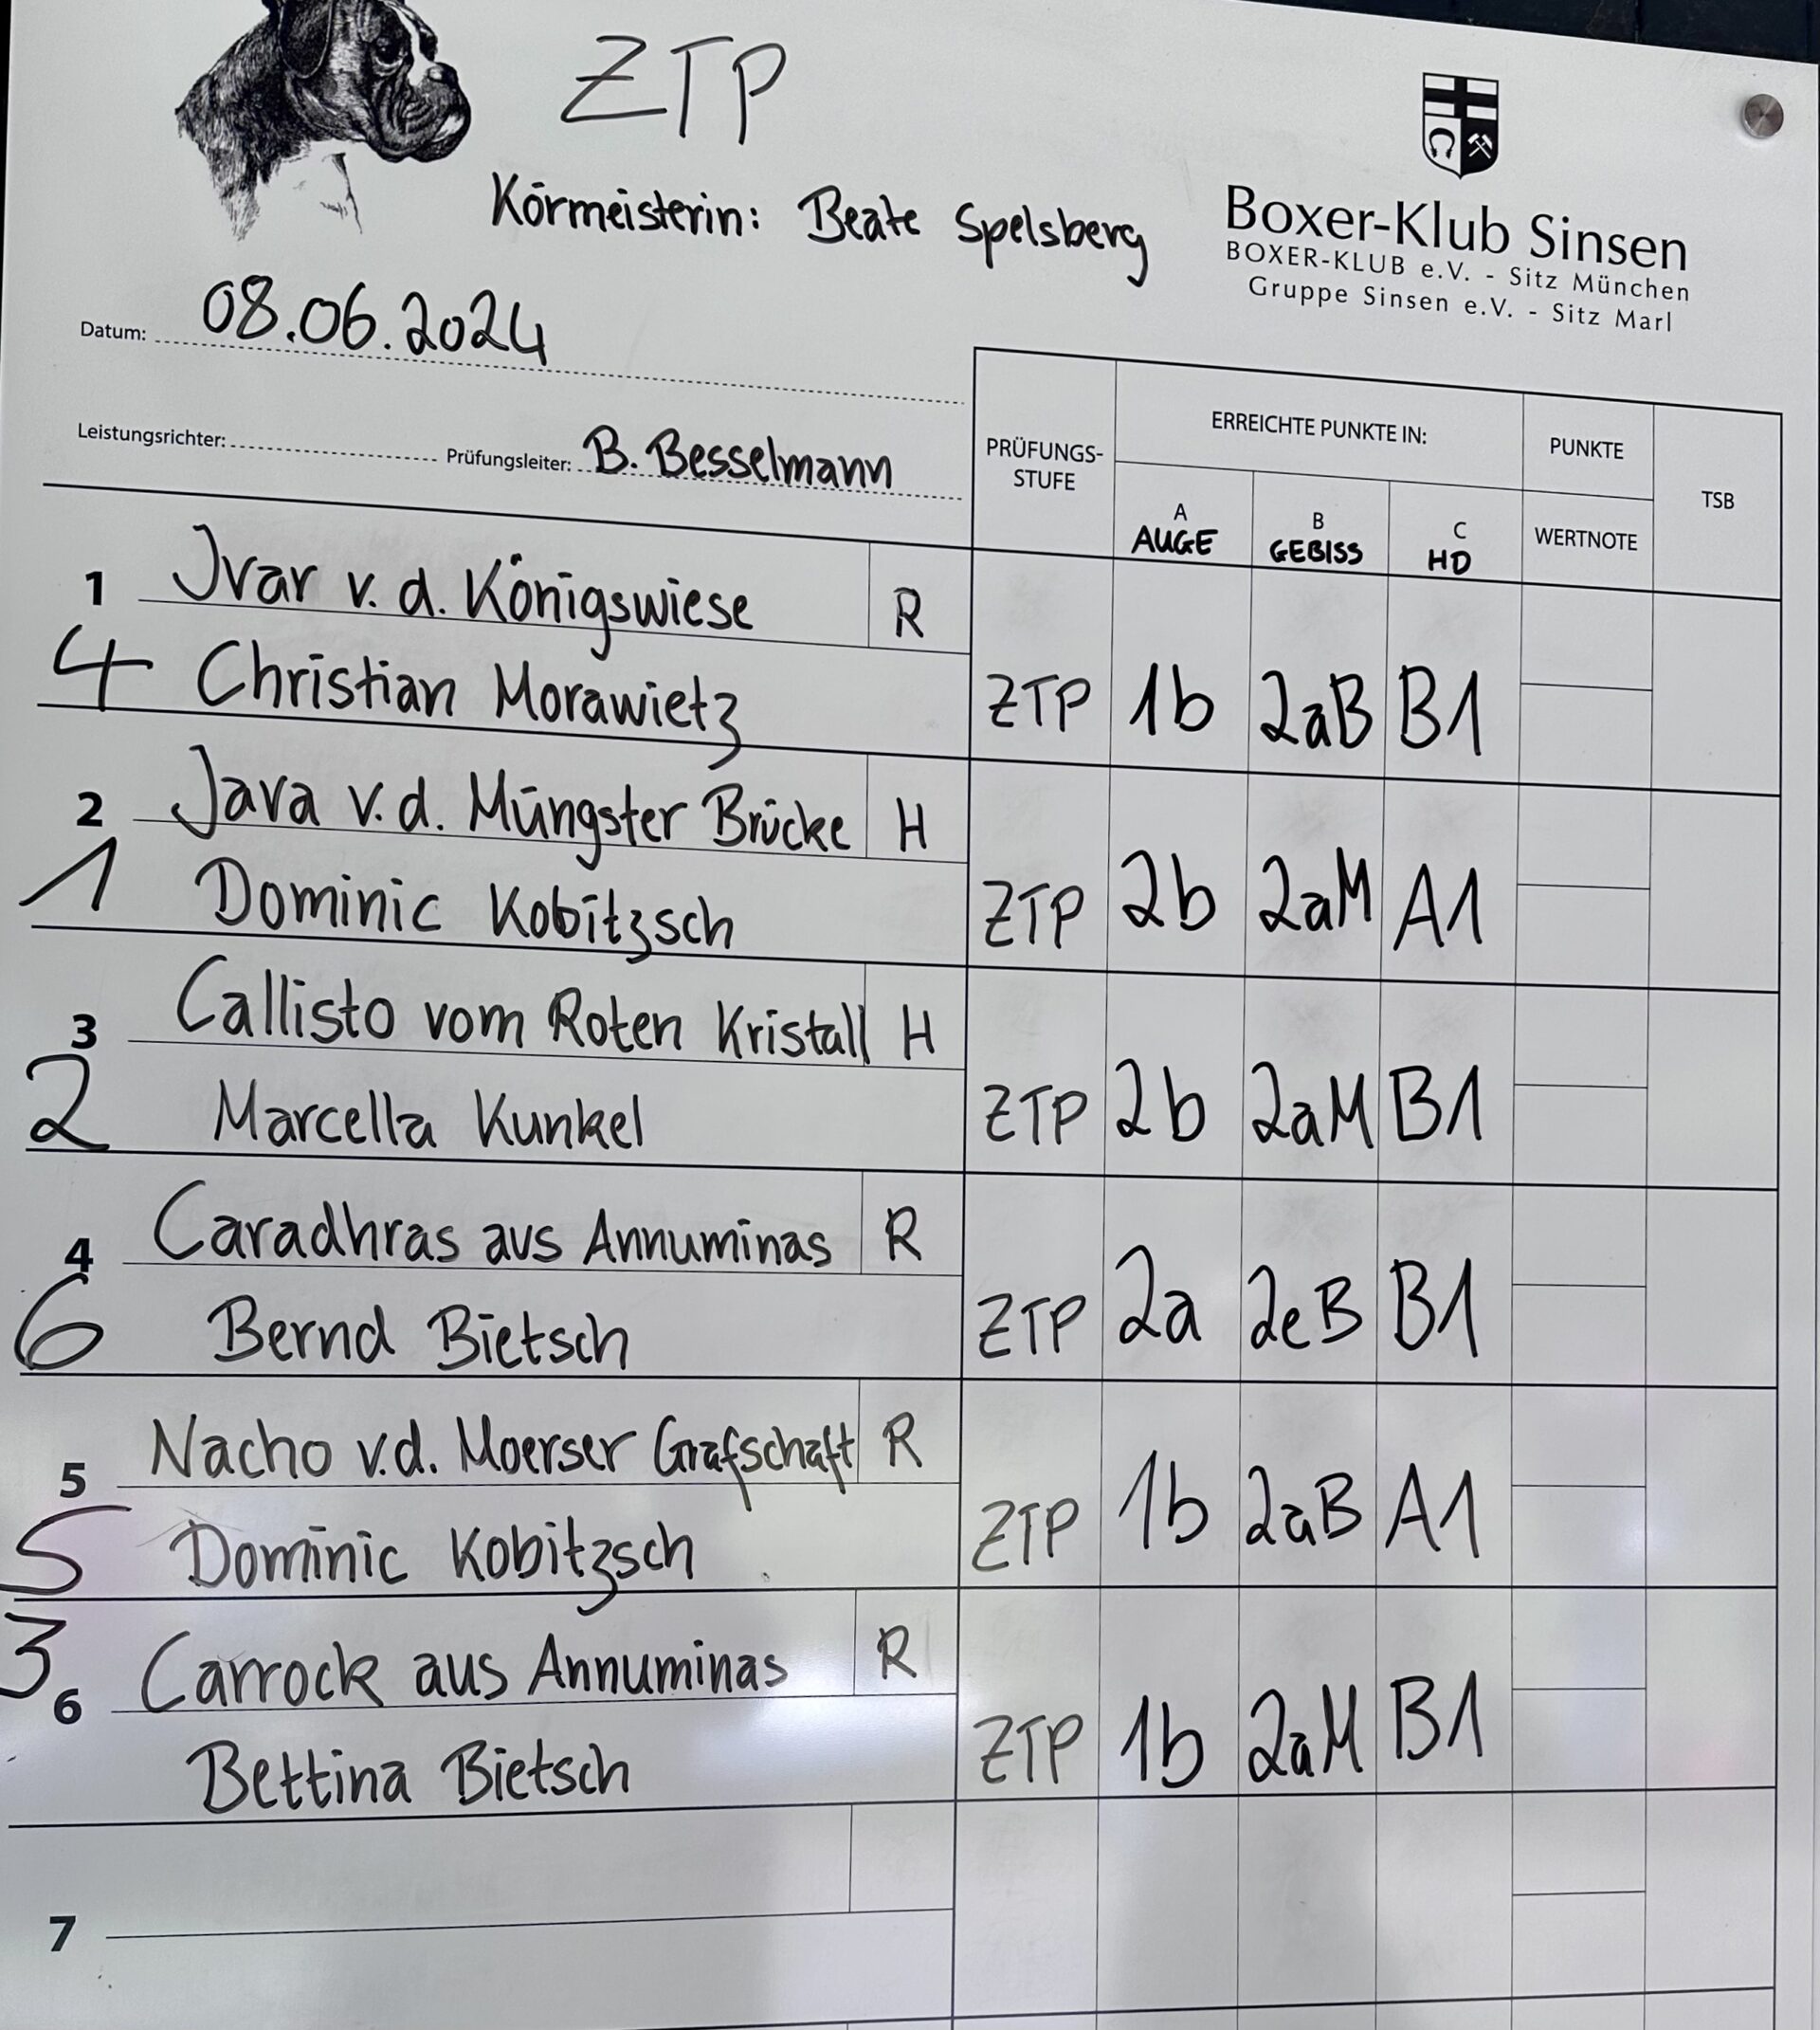 ZTP
Körmeisterin: Beate Spelsberg
Boxer-Klub Sinsen
BOXER-KLUB e.V. - Sitz München
Gruppe Sinsen e.V. - Sitz Marl
Datum: 08.06.2024
Leistungsrichter: Prüfungsleiter: B. Besselmann
PRÜFUNGS-
STUFE
ERREICHTE PUNKTE IN:
A
AUGE
B
GEBISS
C
HD
PUNKTE
WERTNOTE
TSB
1 Jvar v. d. Königswiese R
4 Christian Morawietz ZTP 1b 2aB B1
2 Java v.d. Müngster Brücke H
1 Dominic Kobitzsch ZTP 2b 2aM A1
3 Callisto vom Roten Kristall H
2 Marcella Kunkel ZTP 2b 2aM B1
4 Caradhras aus Annuminas R
6 Bernd Bietsch ZTP 2a 2eB B1
5 Nacho v.d. Moerser Grafschaft R
5 Dominic Kobitzsch ZTP 1b 2aB A1
3 6 Carrock aus Annuminas R
Bettina Bietsch ZTP 1b 2aM B1
7